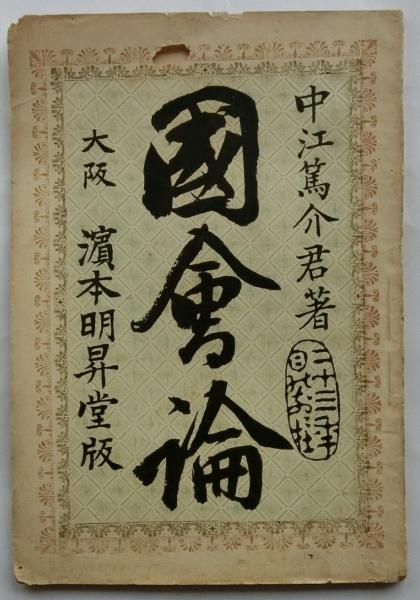 中江篤介君著
國會論
大阪 濵本明昇堂版
二十三年